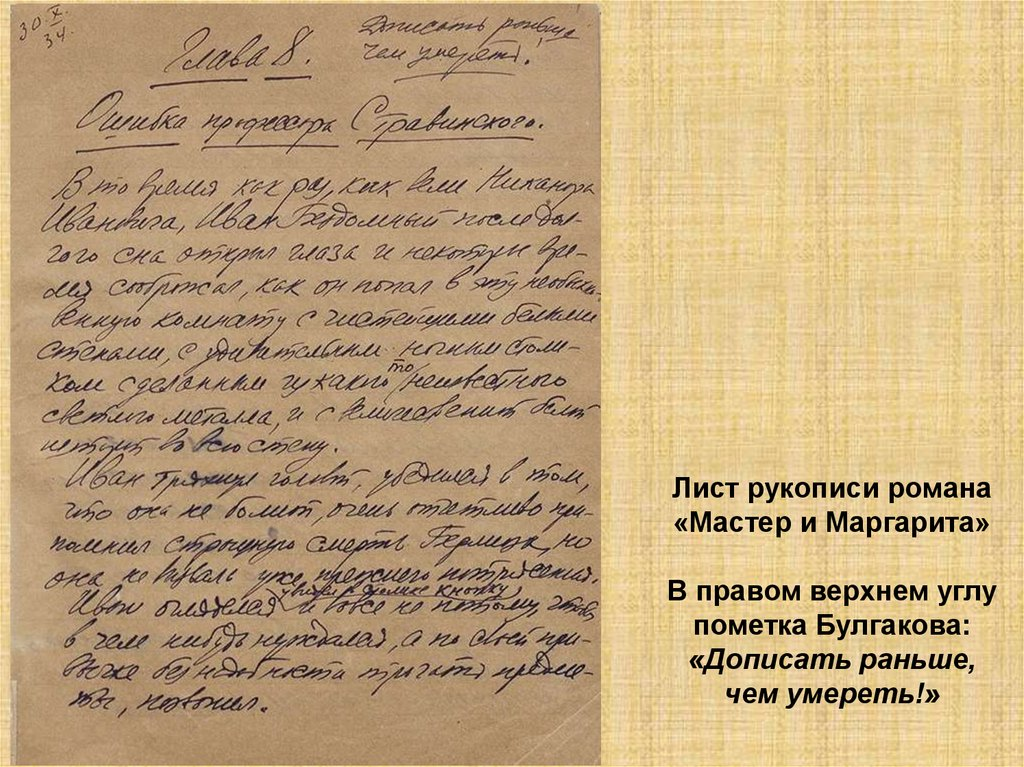 30.X.
34.
Дописать раньше
чем умереть!
Глава 8.
Ошибка профессора Стравинского.
В то время как раз, как вели Никанора
Ивановича, Иван Бездомный после дол-
гого сна открыл глаза и некоторое вре-
мя соображал, как он попал в эту необыкно-
венную комнату с чистейшими белыми
стенами, с удивительным ночным столи-
ком сделанным из какого то неизвестного
светлого металла, и с величественной белой
во всю стену.
Иван тряхнул головой, убедился в том,
что она не болит, очень отчетливо при-
помнил страшную смерть Берлиоза, но
она не вызвала уже прежнего потрясения.
Иван огляделся, увидел в столике кнопку, и вовсе не потому, чтобы
в чем нибудь нуждался, а по своей при-
вычке без надобности трогать предме-
ты, позвонил.
Лист рукописи романа
«Мастер и Маргарита»
В правом верхнем углу
пометка Булгакова:
«Дописать раньше,
чем умереть!»